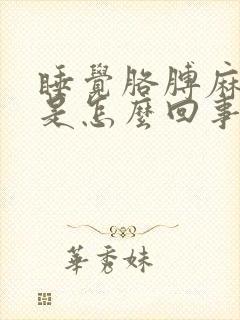 睡覺胳膊麻
是怎麼回事
華秀妹